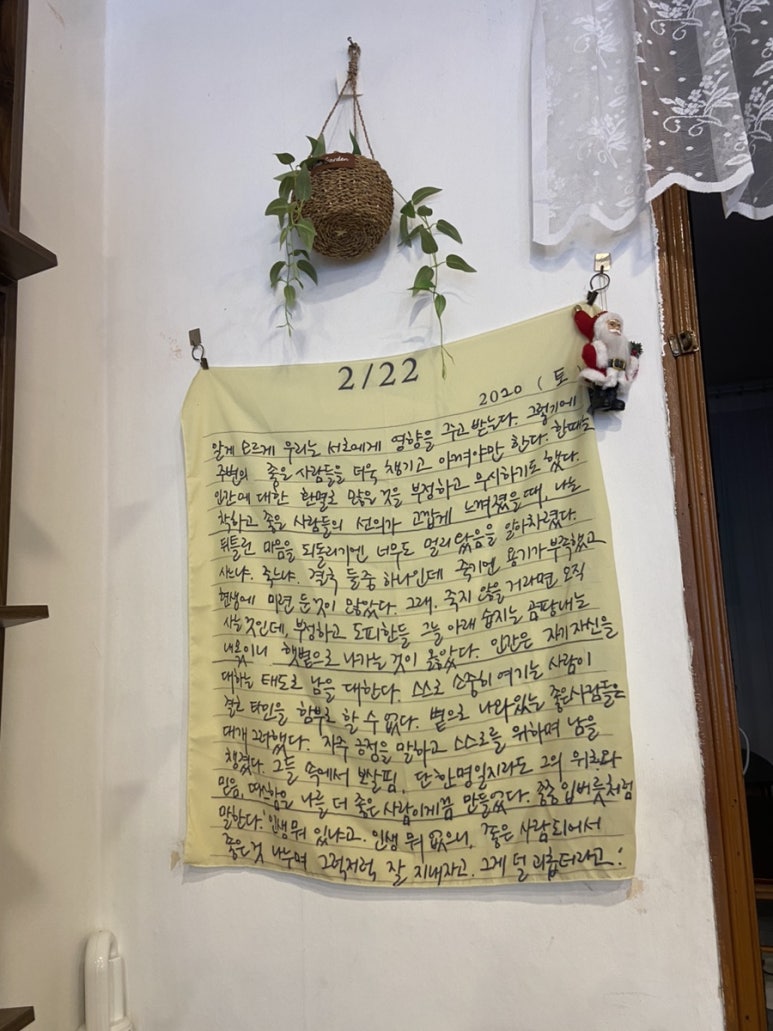 Garden
2/22
2020 (토
알게 모르게 우리는 서로에게 영향을 주고 받는다. 그렇기에
주변의 좋은 사람들을 더욱 챙기고 아껴야만 한다. 한때는
인간에 대한 환멸로 많을 것을 부정하고 무시하기도 했다.
착하고 좋은 사람들의 선의가 고깝게 느껴졌을 때, 나는
뒤틀린 마음을 되돌리기엔 너무도 멀리 왔음을 알아차렸다.
사느냐. 죽느냐. 결국 둘중 하나인데 죽기엔 용기가 부족했고
현생에 미련 둔 것이 많았다. 그래. 죽지 않을 거라면 오직
사는 것인데, 부정하고 도피한들 그늘 아래 습지는 곰팡내는
내음이니 햇볕으로 나가는 것이 옳았다. 인간은 자기 자신을
대하는 태도로 남을 대한다. 스스로 소중히 여기는 사람이
결코 타인을 함부로 할 수 없다. 볕으로 나와있는 좋은사람들은
대개 그러했다. 자주 긍정을 말하고 스스로를 위하며 남을
챙겼다. 그들 속에서 보살핌, 단 한명일지라도 그의 위로와
믿음, 따스함은 나를 더 좋은 사람이게끔 만들었다. 종종 입버릇처럼
말한다. '인생 뭐 있냐고. 인생 뭐 없으니, 좋은 사람 되어서
좋은 것 나누며 그럭저럭 잘 지내자고. 그게 덜 괴롭더라고.'